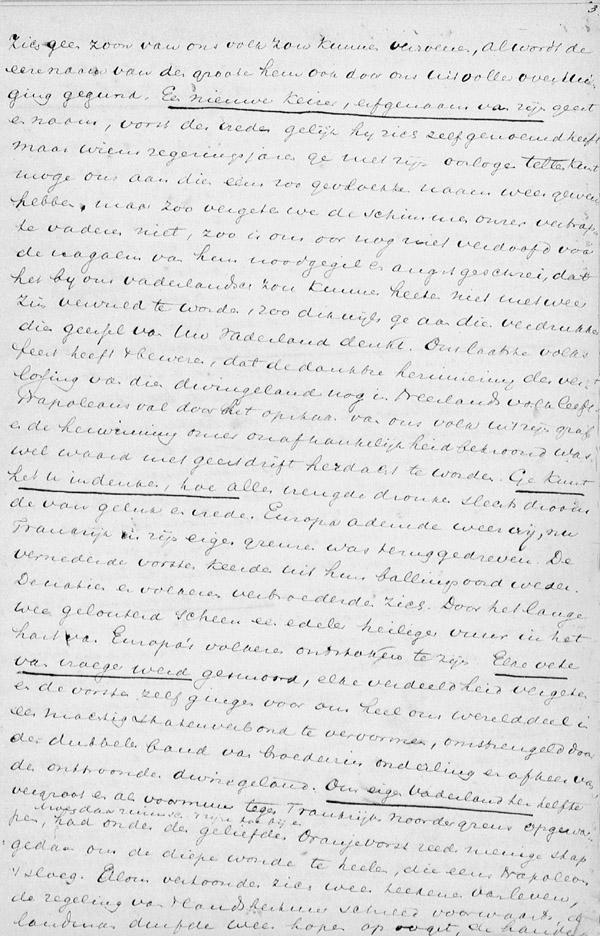 3
zich geen zoon van ons volk zou kunnen verwoenen, al wordt de
eerenaam van den groote hem ook door ons uit volle overtui-
ging gegund. Een nieuwe Keizer, erfgenaam van zijn geest
en naam, vorst des vredes gelijk hij zich zelf genoemd heeft
maar wiens regeeringsjaren ge met zijn oorlogen tellen kunt
moge ons aan die eens zoo gevloekte naam weer gewend
hebben, maar zoo vergeten we de schimmen onzer vertrap-
te vaderen niet, zoo is ons oor nog niet verdoofd voor
de nagalm van hun noodgegil en angstgeschrei, dat
het bij ons vaderlandsch zou kunnen heeten niet met wee
zin vervuld te worden, zoo dikwijls ge aan die verdrukker
die geesel van Uw Vaderland denkt. Ons laatste volks
feest heeft 't bewezen, dat de dankbre herinnering der ver-
lossing van die dwingeland nog in Neerlands volk leeft.
Napoleons val door het opstaan van ons volk uit zijn graf
en de herwinning onzer onafhankelijkheid bekroond was
wel waard met geestdrift herdacht te worden. Ge kunt
het u indenken, hoe alles vreugde dronken slechts droom
de van geluk en vrede. Europa ademde weer vrij, nu
Frankrijk in zijn eigen grenzen was teruggedreven. De
vernederde vorsten keerden uit hun ballingsoord weder.
De natien en volkeren verbroederden zich. Door het lange
wee gelouterd scheen een edeler heiliger vuur in het
hart van Europa's volkeren ontstoken te zijn. Elke vete
van vroeger werd gesmoord, elke verdeeldheid vergeten
en de vorsten zelf gingen voor om heel ons werelddeel in
een machtig statenverbond te vervormen, omstrengeld door
den dubbelen band van broederzin onderling en afkeer van
den onttroonden dwingeland. Ons eigen Vaderland ten helfte
vergroot en als voormuur tegen Frankrijks noordergrens opgewor-
pen, had onder den geliefden Oranjevorst reeds menige stap
gedaan om de diepe wonde te heelen, die eens Napoleon
't sloeg. Alom vertoonden zich weer teekenen van leven,
de regeling van 's lands beheer schreed voorwaarts, de
landman durfde weer hopen op oogst, de handel